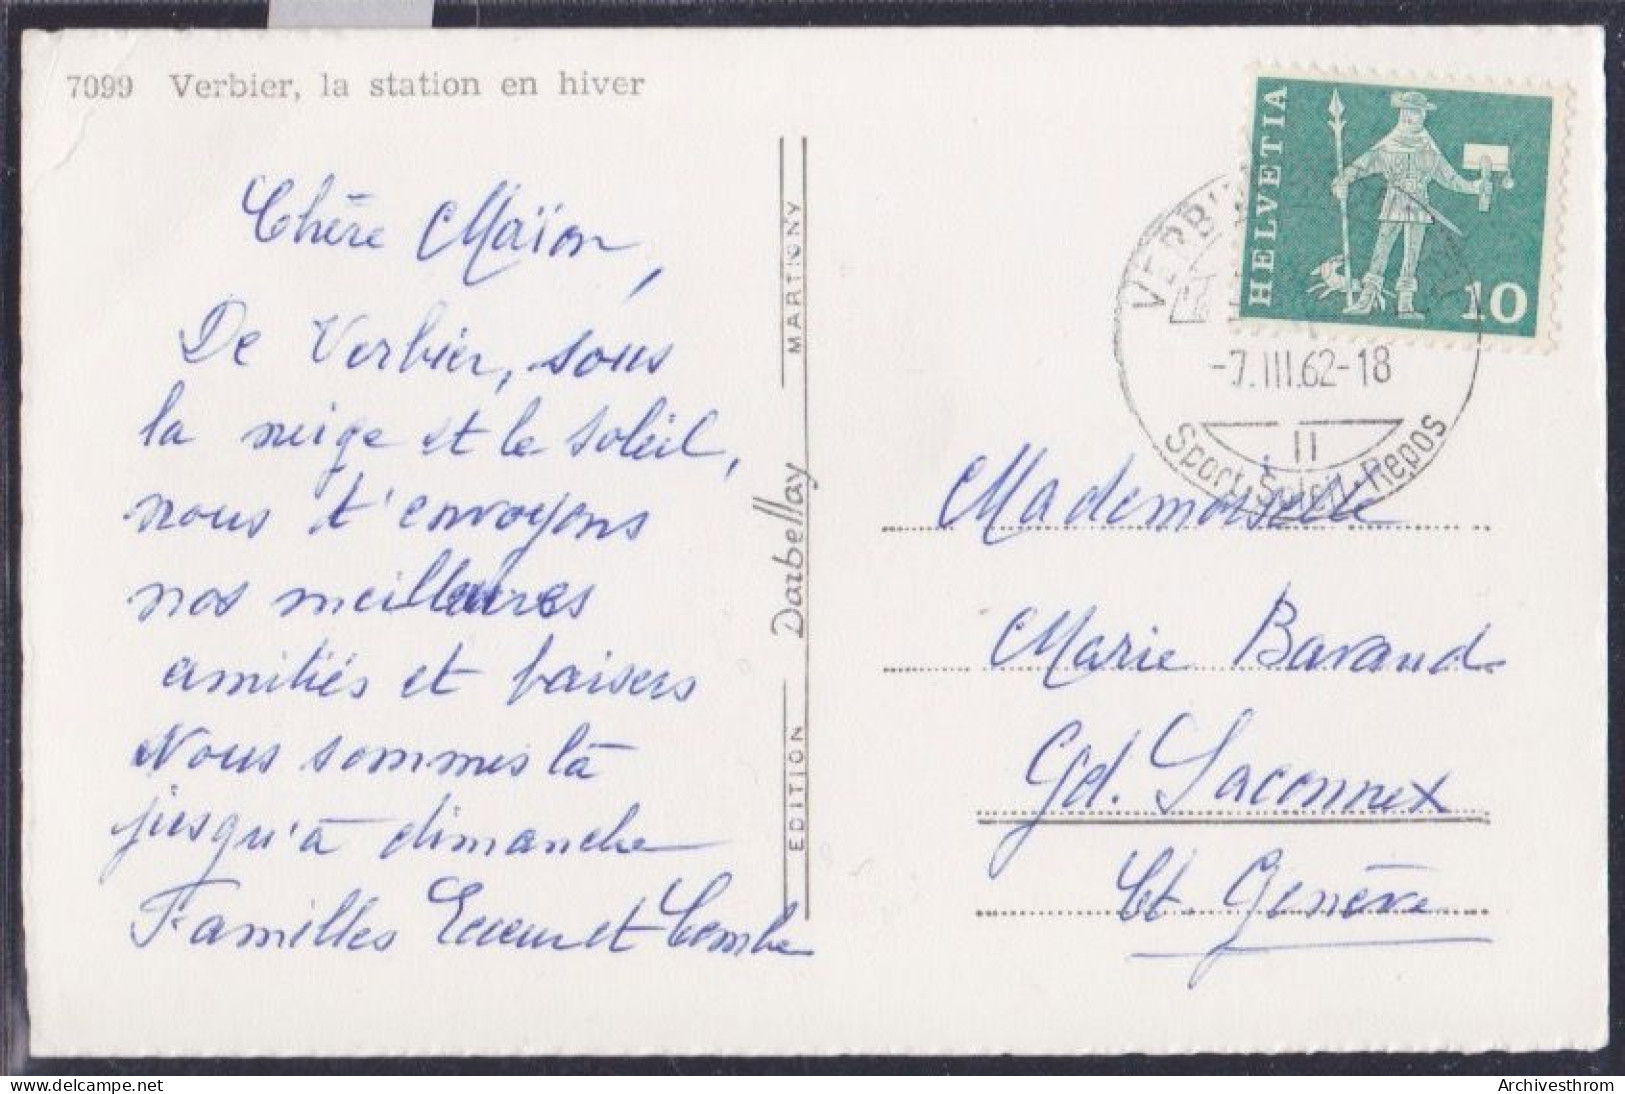 7099 Verbier, la station en hiver
Chère Maïon,
De Verbier, sous
la neige et le soleil,
nous t'envoyons
nos meilleures
amitiés et baisers
Nous sommes là
jusqu'à dimanche
Familles Ecoeur et Combe
EDITION Darbellay MARTIGNY
HELVETIA
10
VERBIER
-7.III.62-18
Sport.Soleil.Repos
Mademoiselle
Marie Bavaud
Gd. Saconnex
Ct. Genève
delcampe.net
Archivesthrom